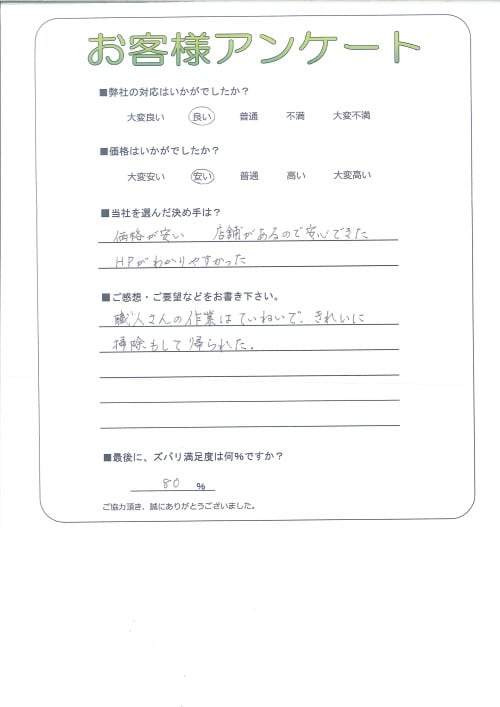 お客様アンケート
■弊社の対応はいかがでしたか？
大変良い 良い 普通 不満 大変不満
■価格はいかがでしたか？
大変安い 安い 普通 高い 大変高い
■当社を選んだ決め手は？
価格が安い 店舗があるので安心できた
HPがわかりやすかった
■ご感想・ご要望などをお書き下さい。
職人さんの作業はていねいで、きれいに
掃除もして帰られた。
■最後に、ズバリ満足度は何％ですか？
80 ％
ご協力頂き、誠にありがとうございました。